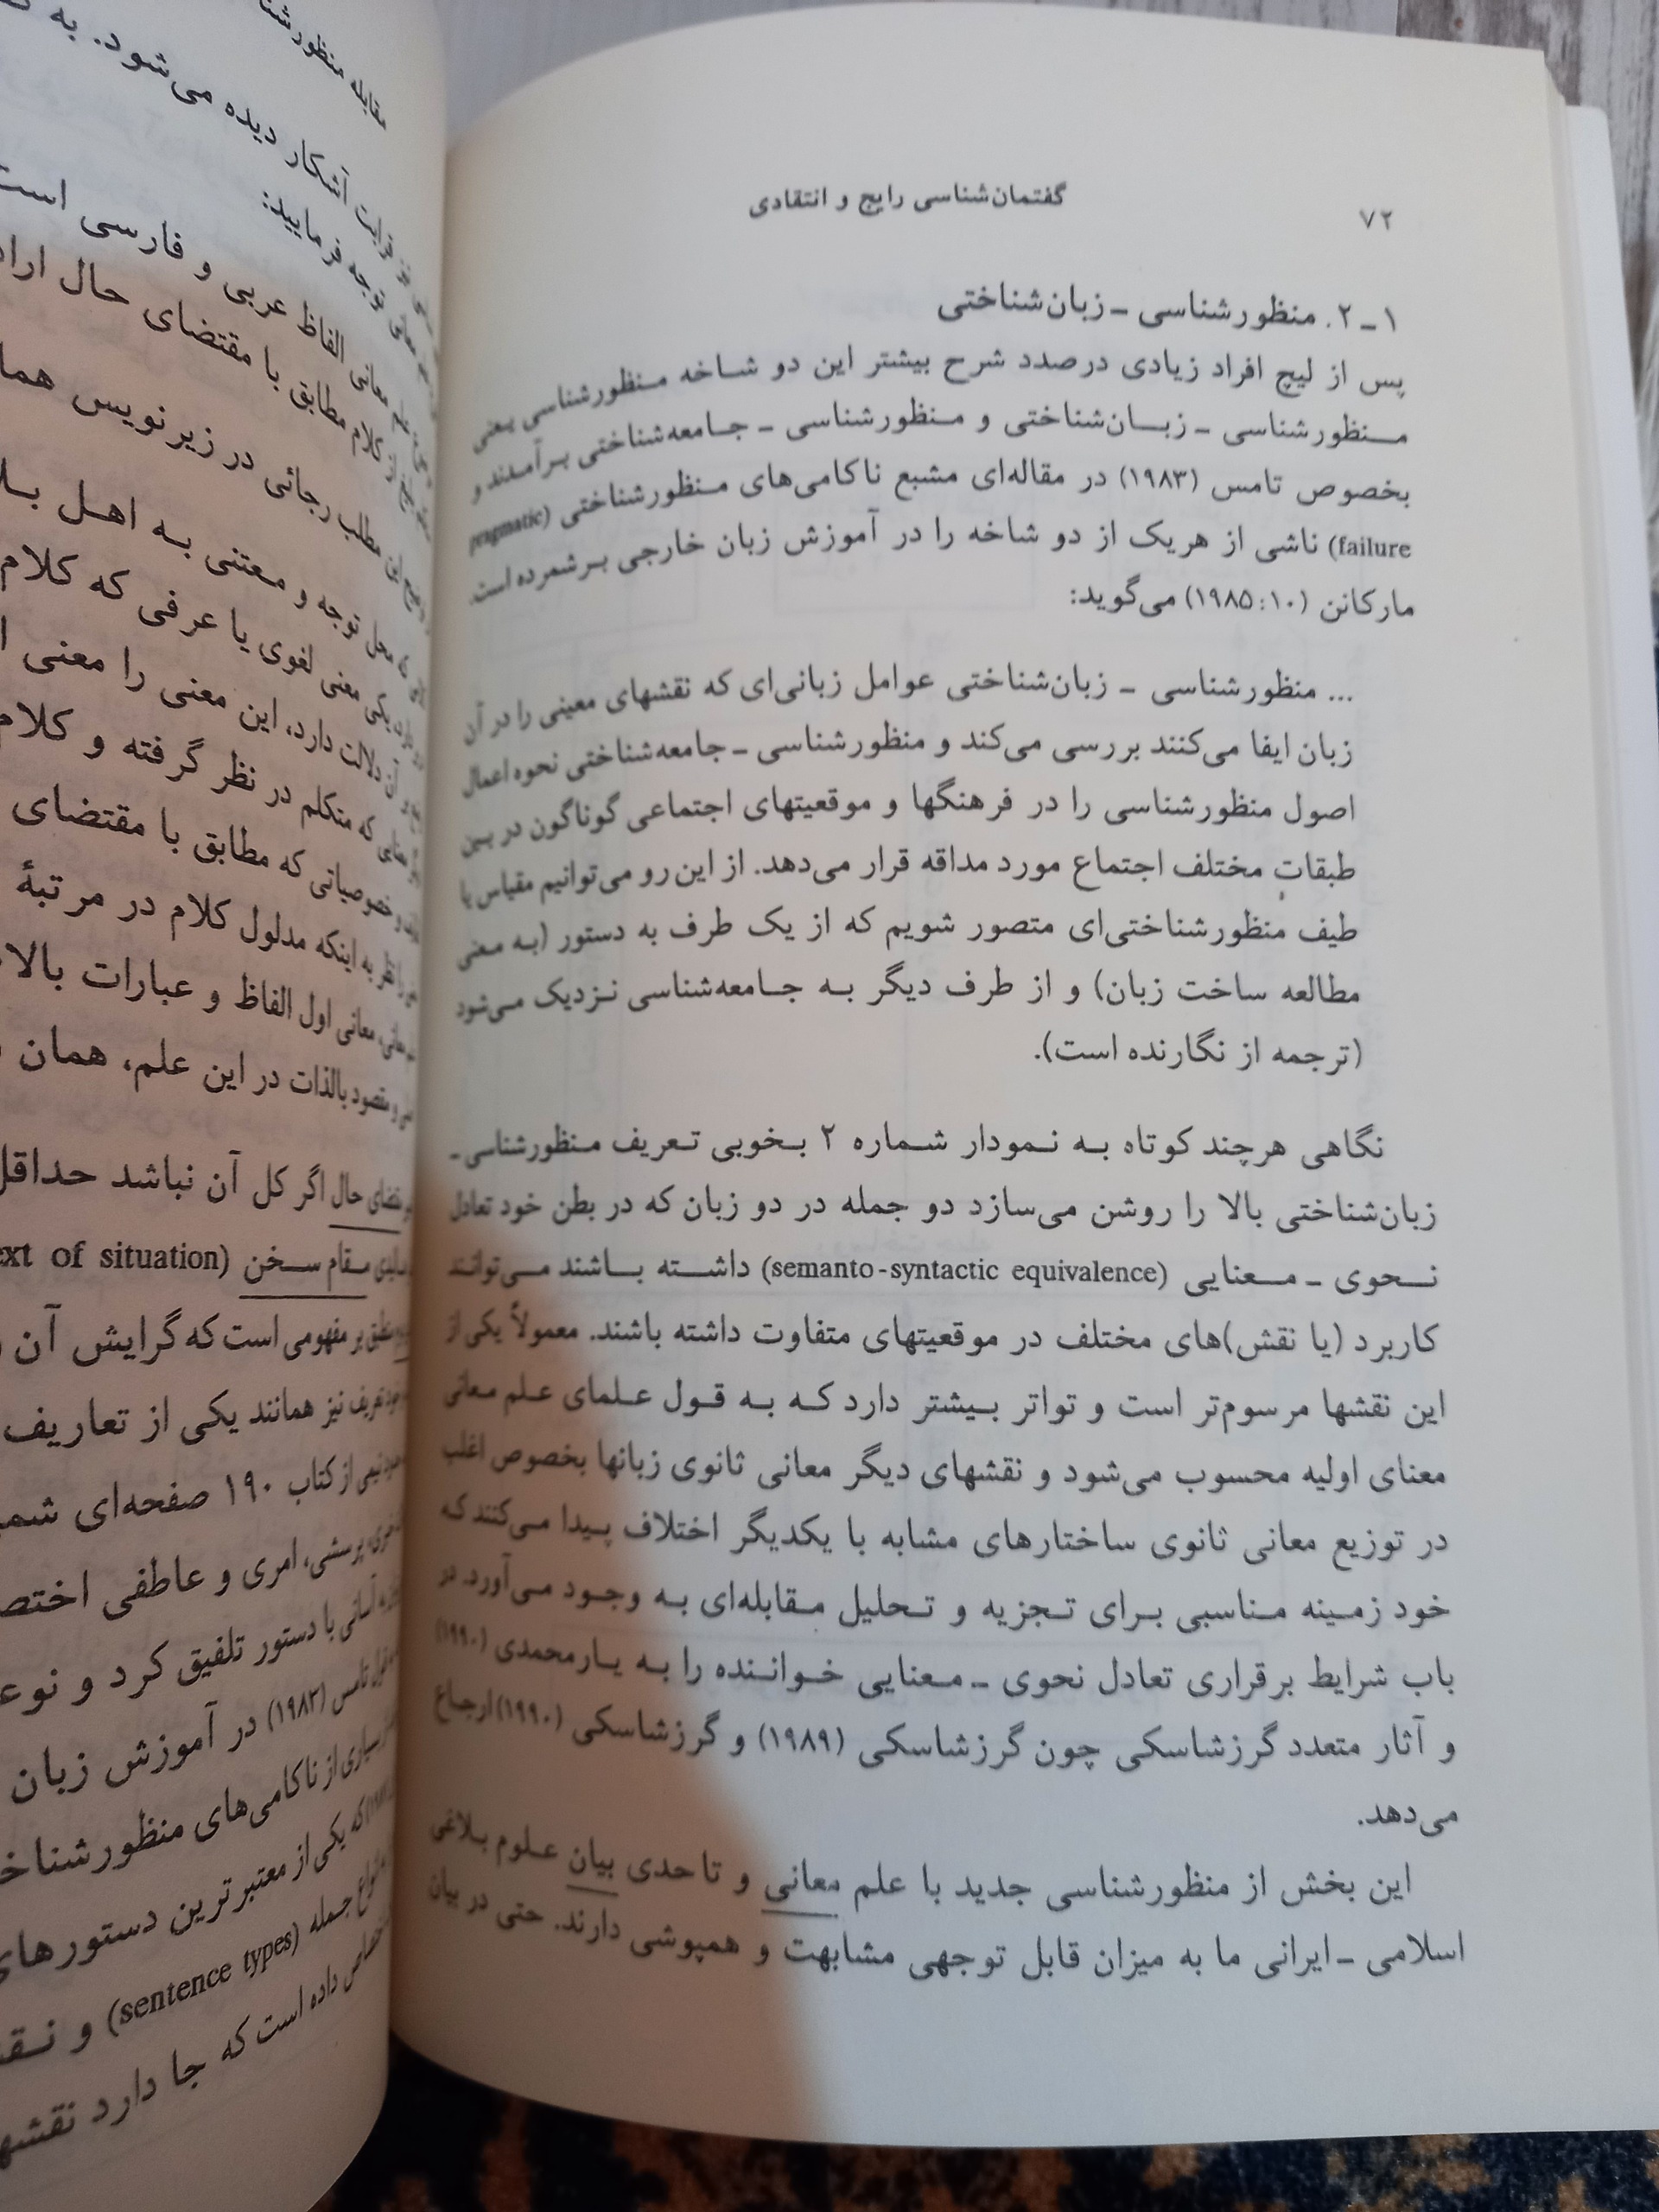 ۷۲
گفتمان‌شناسی رایج و انتقادی
۱ـ۲. منظورشناسی ـ زبان‌شناختی
پس از لیچ افراد زیادی درصدد شرح بیشتر این دو شاخه منظورشناسی یعنی
منظورشناسی ـ زبان‌شناختی و منظورشناسی ـ جامعه‌شناختی برآمدند و
بخصوص تامس (۱۹۸۳) در مقاله‌ای مشبع ناکامی‌های منظورشناختی (pragmatic
failure) ناشی از هریک از دو شاخه را در آموزش زبان خارجی برشمرده است.
مارکانن (۱۹۸۵:۱۰) می‌گوید:
... منظورشناسی ـ زبان‌شناختی عوامل زبانی‌ای که نقشهای معینی را در آن
زبان ایفا می‌کنند بررسی می‌کند و منظورشناسی ـ جامعه‌شناختی نحوه اعمال
اصول منظورشناسی را در فرهنگها و موقعیتهای اجتماعی گوناگون در بین
طبقات مختلف اجتماع مورد مداقه قرار می‌دهد. از این‌رو می‌توانیم مقیاس یا
طیف منظورشناختی‌ای متصور شویم که از یک طرف به دستور (به معنی
مطالعه ساخت زبان) و از طرف دیگر به جامعه‌شناسی نزدیک می‌شود
(ترجمه از نگارنده است).
نگاهی هرچند کوتاه به نمودار شماره ۲ بخوبی تعریف منظورشناسی ـ
زبان‌شناختی بالا را روشن می‌سازد دو جمله در دو زبان که در بطن خود تعادل
نحوی ـ معنایی (semanto-syntactic equivalence) داشته باشند می‌توانند
کاربرد (یا نقش)های مختلف در موقعیتهای متفاوت داشته باشند. معمولاً یکی از
این نقشها مرسوم‌تر است و تواتر بیشتر دارد که به قول علمای علم معانی
معنای اولیه محسوب می‌شود و نقشهای دیگر معانی ثانوی زبانها بخصوص اغلب
در توزیع معانی ثانوی ساختارهای مشابه با یکدیگر اختلاف پیدا می‌کنند که
خود زمینه مناسبی برای تجزیه و تحلیل مقابله‌ای به وجود می‌آورد. در
باب شرایط برقراری تعادل نحوی ـ معنایی خواننده را به یارمحمدی (۱۹۹۰)
و آثار متعدد گرزشاسکی چون گرزشاسکی (۱۹۸۹) و گرزشاسکی (۱۹۹۰) ارجاع
می‌دهد.
این بخش از منظورشناسی جدید با علم معانی و تا حدی بیان علوم بلاغی
اسلامی ـ ایرانی ما به میزان قابل توجهی مشابهت و همپوشی دارند. حتی در بیان
مقابله
آشکار دیده می‌شود. به
توجه فرمایید:
معانی الفاظ عربی و فارسی است
کلام مطابق با مقتضای حال
این مطلب رجائی در زیرنویس
محل توجه و معتنی به اهل
یکی معنی لغوی یا عرفی که کلام
آن دلالت دارد، این معنی را معنی
که متکلم در نظر گرفته و کلام
و خصوصیاتی که مطابق با مقتضای
نظر به اینکه مدلول کلام در مرتبهٔ
معانی اول الفاظ و عبارات بالا
و مقصود بالذات در این علم، همان
حال اگر کل آن نباشد حداقل
مقام سخن (of situation
منطبق بر مفهومی است که گرایش آن
تعریف نیز همانند یکی از تعاریف
از کتاب ۱۹۰ صفحه‌ای
پرسشی، امری و عاطفی
با دستور تلفیق کرد و نوع
تامس (۱۹۸۳) در آموزش زبان
بسیاری از ناکامی‌های
که یکی از معتبرترین دستورهای
انواع جمله (sentence types) و
داده است که جا دارد